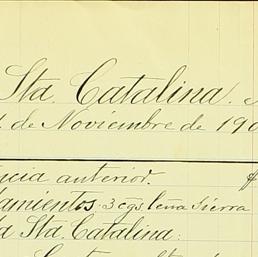 Sta. Catalina.
de Noviembre de 190
ncia anterior. $
damientos. 3 cgs leña Sierra
a Sta. Catalina: